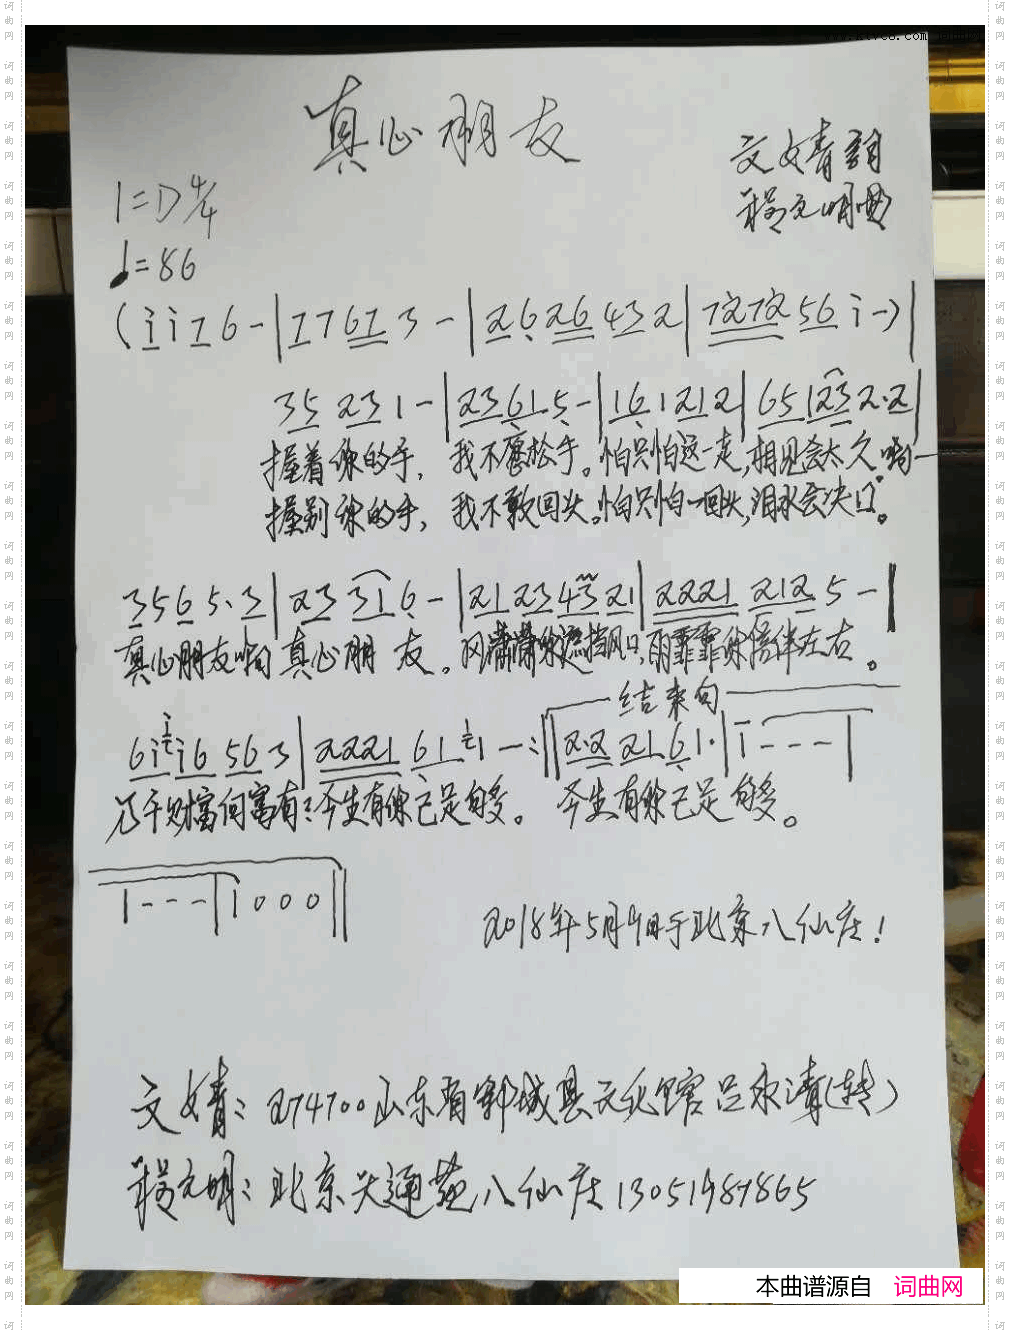 真心朋友
文女青词
程元明曲
1=D 4/4
♩=86
(i i 7 6 - | 7 7 6 7 3 - | 2 6 2 6 4 3 2 | 7 2 7 2 5 6 i -) |
3 5 2 3 1 - | 2 3 6 1 5 - | 1 6 1 2 1 2 | 6 5 1 2 3 2 · 2 |
握着你的手，我不愿松手。怕只怕这一走，相见会太久。啊一
握别你的手，我不敢回头。怕只怕一回头，泪水会决口。
3 5 6 5 · 3 | 2 3 3 1 6 - | 2 1 2 3 4 3 2 1 | 2 2 2 1 2 1 2 5 - |
真心朋友啊真心朋友。风潇潇你遮挡风口，雨霏霏你陪伴左右。
结束句
6 i i 6 5 6 3 | 2 2 2 1 6 1 1 - :|| 2 · 2 2 1 6 1 · | 1 - - - |
万千财富何富有？今生有你已足够。 今生有你已足够。
1 - - - | 1 0 0 0 ||
2018年5月9日于北京八仙庄！
文女青：274700山东省郓城县文化馆吕永清(转)
程元明：北京天通苑八仙庄13051987865
本曲谱源自 词曲网